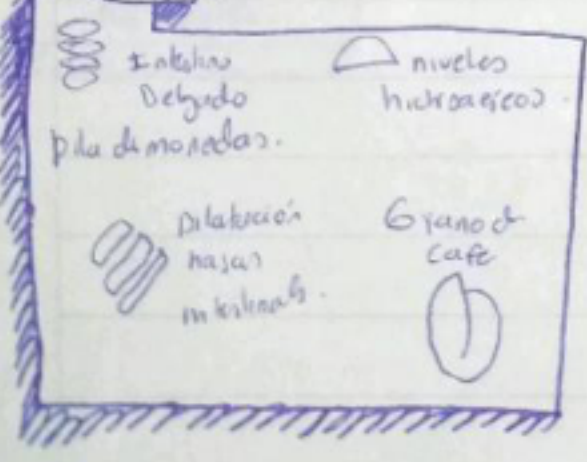 Intestino
Delgado
pila de monedas.
niveles
hidroaereos.
Dilatación
hasas
intestinals.
Grano de
Cafe